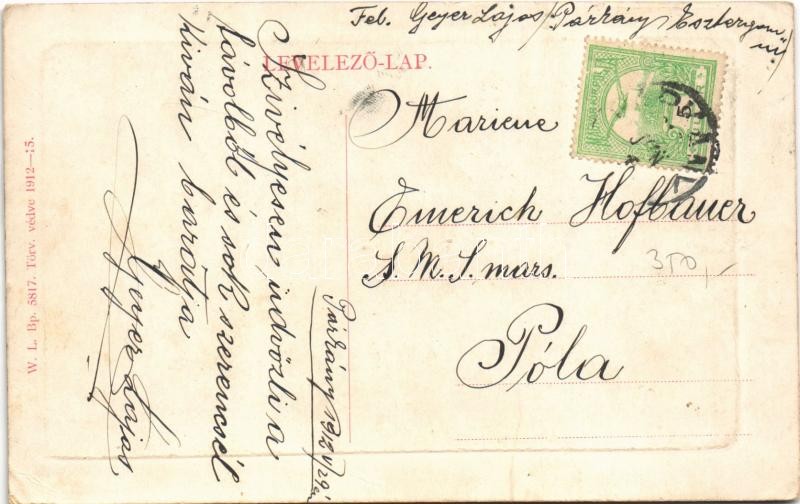 Fel. Geyer Lajos / Párkány / Esztergom m.
LEVELEZŐ-LAP.
Mariene
Emerich Hofbauer
S. M. S. mars.
Póla
350,-
Szivélyesen üdvözli a
távolból és sok szerencsét
kiván barátja
Geyer Lajos
Párkány 1912
W. L. Bp. 5817. Törv. védve 1912—15.